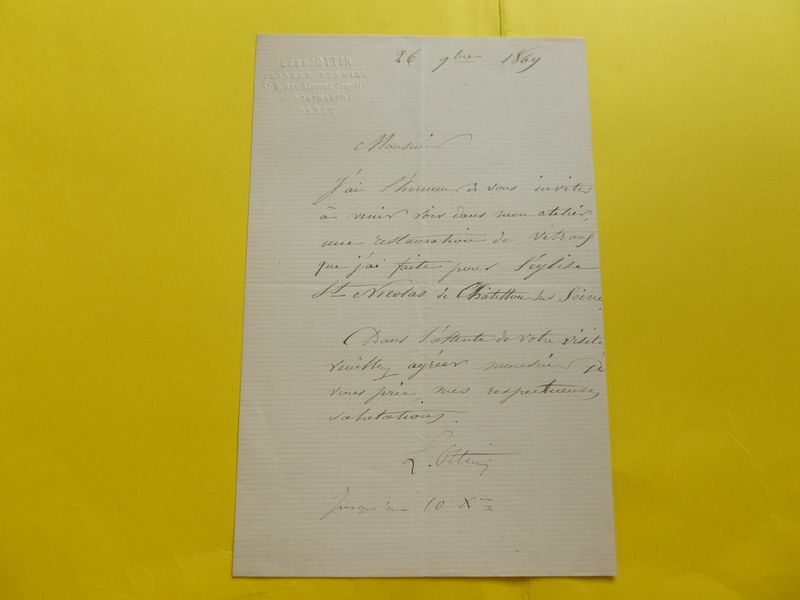 Léon OTTIN
PEINTRE VERRIER
Rue
à MONTMARTRE
PARIS
26 9bre 1869
Monsieur
J'ai l'honneur de vous inviter
à venir voir dans mon atelier,
une restauration de vitraux
que j'ai faite pour l'église
St Nicolas de Châtillon sur Seine.
Dans l'attente de votre visite
veuillez agréer monsieur je
vous prie, mes respectueuses
salutations.
L. Ottin
Jusqu'au 10 Xbre